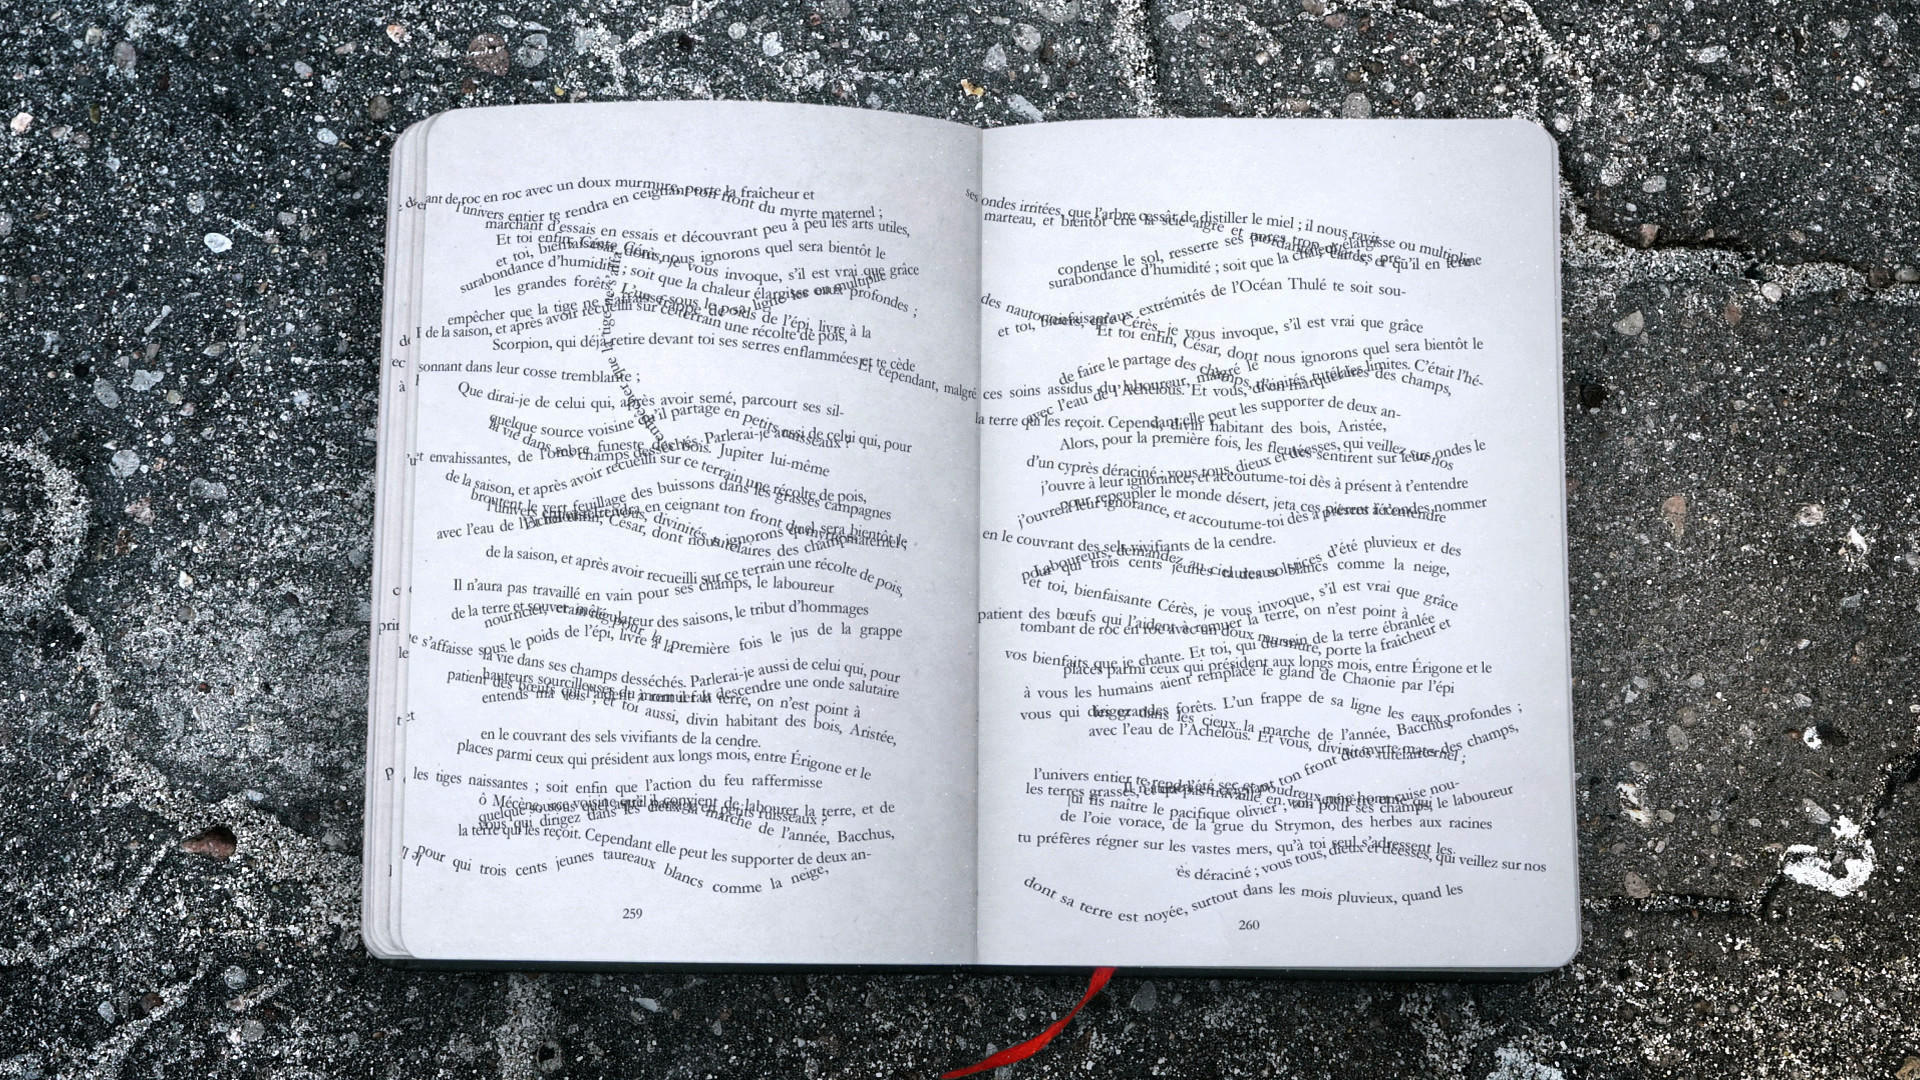 ant de roc en roc avec un doux murmure, porte la fraîcheur et
l'univers entier te rendra en ceignant ton front du myrte maternel ;
marchand d'essais en essais et découvrant peu à peu les arts utiles,
Et toi enfin, César, dont nous ignorons quel sera bientôt le
et toi, bienfaisante Cérès, je vous invoque, s'il est vrai que grâce
surabondance d'humidité ; soit que la chaleur élargisse ou multiplie
les grandes forêts. L'un sous le poids de l'épi, livre à la
ligne les eaux profondes ;
empêcher que la tige ne
de la saison, et après avoir recueilli sur ce terrain une récolte de pois,
Scorpion, qui déjà retire devant toi ses serres enflammées et te cède
sonnant dans leur cosse tremblante ;
Que dirai-je de celui qui, après avoir semé, parcourt ses sil-
quelque source voisine qu'il partage en petits ruisseaux ?
la vie dans ses champs desséchés. Parlerai-je aussi de celui qui, pour
envahissantes, de l'ombre funeste des bois. Jupiter lui-même
de la saison, et après avoir recueilli sur ce terrain une récolte de pois,
broutent le vert feuillage des buissons dans les grasses campagnes
l'univers entier te rendra en ceignant ton front du myrte maternel ;
Et toi enfin, César, dont nous ignorons quel sera bientôt le
avec l'eau de l'Achéloüs. Et vous, divinités tutélaires des champs,
de la saison, et après avoir recueilli sur ce terrain une récolte de pois,
Il n'aura pas travaillé en vain pour ses champs, le laboureur
de la terre et souverain régulateur des saisons, le tribut d'hommages
nourricier, et mêlé pour la première fois le jus de la grappe
s'affaisse sous le poids de l'épi, livre à la
la vie dans ses champs desséchés. Parlerai-je aussi de celui qui, pour
hauteurs sourcilleuses du mont il fait descendre une onde salutaire
patient des bœufs qui l'aident à remuer la terre, on n'est point à
entends ma voix ; et toi aussi, divin habitant des bois, Aristée,
en le couvrant des sels vivifiants de la cendre.
places parmi ceux qui président aux longs mois, entre Érigone et le
les tiges naissantes ; soit enfin que l'action du feu raffermisse
ô Mécène, sous quel astre il convient de labourer la terre, et de
quelque source voisine qu'il partage en petits ruisseaux ?
vous qui dirigez dans les cieux la marche de l'année, Bacchus,
la terre qui les reçoit. Cependant elle peut les supporter de deux an-
pour qui trois cents jeunes taureaux blancs comme la neige,
259
ses ondes irritées, que l'arbre cessât de distiller le miel ; il nous ravisse ou multiplie
marteau, et bientôt crie la scie aigre et
condense le sol, resserre ses pores trop élargis
surabondance d'humidité ; soit que la chaleur
des nautoniers, qu'aux extrémités de l'Océan Thulé te soit sou-
et toi, bienfaisante Cérès, je vous invoque, s'il est vrai que grâce
Et toi enfin, César, dont nous ignorons quel sera bientôt le
de faire le partage des champs, d'en marquer les limites. C'était l'hé-
Et cependant, malgré ces soins assidus du laboureur, malgré le
avec l'eau de l'Achéloüs. Et vous, divinités tutélaires des champs,
la terre qui les reçoit. Cependant elle peut les supporter de deux an-
divin habitant des bois, Aristée,
Alors, pour la première fois, les fleuves sentirent sur leurs ondes le
d'un cyprès déraciné ; vous tous, dieux et déesses, qui veillez sur nos
j'ouvre à leur ignorance, et accoutume-toi dès à présent à t'entendre
pour repeupler le monde désert, jeta ces pierres fécondes
nommer
j'ouvre à leur ignorance, et accoutume-toi dès à présent à t'entendre
en le couvrant des sels vivifiants de la cendre.
Laboureurs, demandez au ciel des solstices d'été pluvieux et des
pour qui trois cents jeunes taureaux blancs comme la neige,
et toi, bienfaisante Cérès, je vous invoque, s'il est vrai que grâce
patient des bœufs qui l'aident à remuer la terre, on n'est point à
tombant de roc en roc avec un doux murmure, porte la fraîcheur et
vos bienfaits que je chante. Et toi, qui du sein de la terre ébranlée
places parmi ceux qui président aux longs mois, entre Érigone et le
à vous les humains aient remplacé le gland de Chaonie par l'épi
les grandes forêts. L'un frappe de sa ligne les eaux profondes ;
vous qui dirigez dans les cieux la marche de l'année, Bacchus,
avec l'eau de l'Achéloüs. Et vous, divinités tutélaires des champs,
l'univers entier te rendra en ceignant ton front du myrte maternel ;
les terres grasses, et
Il n'aura pas travaillé en vain pour ses champs, le laboureur
fis naître le pacifique olivier ;
de l'oie vorace, de la grue du Strymon, des herbes aux racines
tu préfères régner sur les vastes mers, qu'à toi seul s'adressent les
ès déraciné ; vous tous, dieux et déesses, qui veillez sur nos
dont sa terre est noyée, surtout dans les mois pluvieux, quand les
260